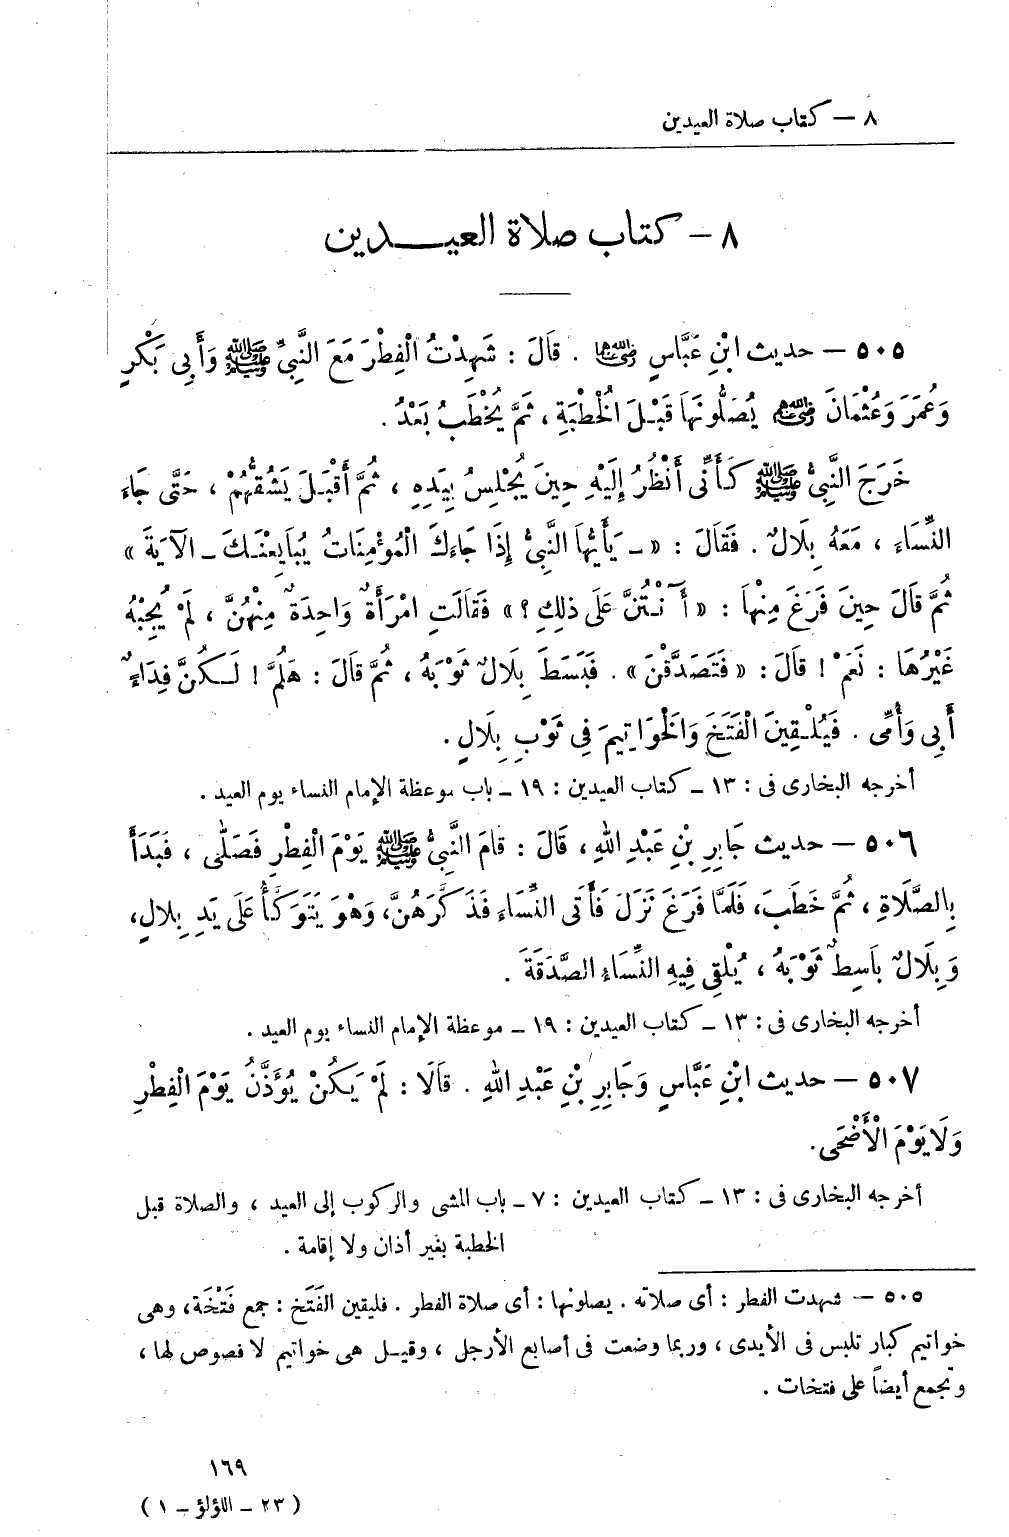 ٨ – كتاب صلاة العيدين
٨ – كتاب صلاة العيــــدين
٥٠٥ – حديث ابْنِ عَبَّاسٍ رضي الله عنهما . قَالَ : شَهِدْتُ الْفِطْرَ مَعَ النَّبِيِّ ﷺ وَأَبِى بَكْرٍ
وَعُمَرَ وَعُثْمَانَ رضي الله عنهم يُصَلُّونَهَا قَبْلَ الْخُطْبَةِ ، ثُمَّ يُخْطَبُ بَعْدُ .
خَرَجَ النَّبِىُّ ﷺ كَأَنِّى أَنْظُرُ إِلَيْهِ حِينَ يُجْلِسُ بِيَدِهِ ، ثُمَّ أَقْبَلَ يَشُقُّهُمْ ، حَتَّى جَاءَ
النِّسَاءَ ، مَعَهُ بِلَالٌ . فَقَالَ : « ـ يَأَيُّهَا النَّبِىُّ إِذَا جَاءَكَ الْمُؤْمِنَاتُ يُبَايِعْنَكَ ـ الآيَةَ »
ثُمَّ قَالَ حِينَ فَرَغَ مِنْهَا : « آنْتُنَّ عَلَى ذلِكِ ؟ » فَقَالَتِ امْرَأَةٌ وَاحِدَةٌ مِنْهُنَّ ، لَمْ يُجِبْهُ
غَيْرُهَا : نَعَمْ ! قَالَ : « فَتَصَدَّقْنَ » . فَبَسَطَ بِلَالٌ ثَوْبَهُ ، ثُمَّ قَالَ : هَلُمَّ ! لَكُنَّ فِدَاءٌ
أَبِى وَأُمِّى . فَيُلْقِينَ الْفَتَخَ وَالْخَوَاتِيمَ فِى ثَوْبِ بِلَالٍ .
أخرجه البخارى فى : ١٣ ـ كتاب العيدين : ١٩ ـ باب موعظة الإمام النساء يوم العيد .
٥٠٦ – حديث جَابِرِ بْنِ عَبْدِ اللهِ ، قَالَ : قَامَ النَّبِىُّ ﷺ يَوْمَ الْفِطْرِ فَصَلَّى ، فَبَدَأَ
بِالصَّلَاةِ ، ثُمَّ خَطَبَ ، فَلَمَّا فَرَغَ نَزَلَ فَأَتَى النِّسَاءَ فَذَكَّرَهُنَّ ، وَهْوَ يَتَوَكَّأُ عَلَى يَدِ بِلَالٍ ،
وَبِلَالٌ بَاسِطٌ ثَوْبَهُ ، يُلْقِى فِيهِ النِّسَاءُ الصَّدَقَةَ .
أخرجه البخارى فى : ١٣ ـ كتاب العيدين : ١٩ ـ موعظة الإمام النساء يوم العيد .
٥٠٧ – حديث ابْنِ عَبَّاسٍ وَجَابِرِ بْنِ عَبْدِ اللهِ . قَالَا : لَمْ يَكُنْ يُؤَذَّنُ يَوْمَ الْفِطْرِ
وَلَا يَوْمَ الْأَضْحَى .
أخرجه البخارى فى : ١٣ ـ كتاب العيدين : ٧ ـ باب المشى والركوب إلى العيد ، والصلاة قبل
الخطبة بغير أذان ولا إقامة .
٥٠٥ – شهدت الفطر : أى صلاته . يصلونها : أى صلاة الفطر . فليقين الفَتَخ : جمع فَتْخَة ، وهى
خواتيم كبار تلبس فى الأيدى ، وربما وضعت فى أصابع الأرجل ، وقيل هى خواتيم لا فصوص لها ،
وتجمع أيضاً على فتخات .
١٦٩
( ٢٣ – اللؤلؤ – ١ )